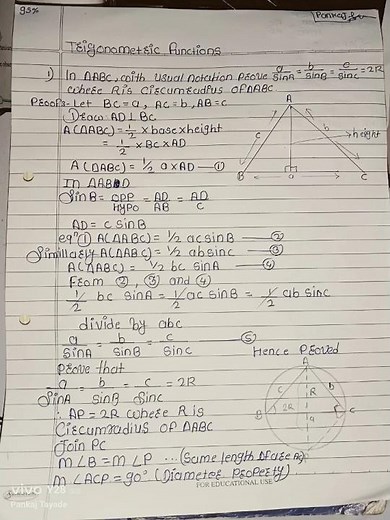 95%
Pankaj
Trigonometric Functions
1) In ΔABC, with usual notation prove a/sinA = b/sinB = c/sinc = 2R
where R is circumradius of ΔABC
Proof:- Let BC = a, AC = b, AB = c
Draw AD ⊥ BC
A(ΔABC) = 1/2 × base × height
= 1/2 × BC × AD
A(ΔABC) = 1/2 a × AD — ①
A
c
b
height
B
a
C
In ΔABD
Sin B = opp/Hypo = AD/AB = AD/c
AD = c sin B
eqn ① A(ΔABC) = 1/2 ac sin B — ②
Similarly A(ΔABC) = 1/2 ab sinc — ③
A(ΔABC) = 1/2 bc sin A — ④
From ②, ③ and ④
1/2 bc sin A = 1/2 ac sin B = 1/2 ab sinc
divide by abc
a/SinA = b/SinB = c/Sinc — ⑤
Hence Proved
Prove that
a/SinA = b/SinB = c/Sinc = 2R
∴ AP = 2R where R is
Circumradius of ΔABC
Join PC
m∠B = m∠P ...(Same length of arc AC)
m∠ACP = 90° (Diameter Property)
A
c
R
b
B
2R
a
C
FOR EDUCATIONAL USE
vivo Y28
Pankaj Tayade